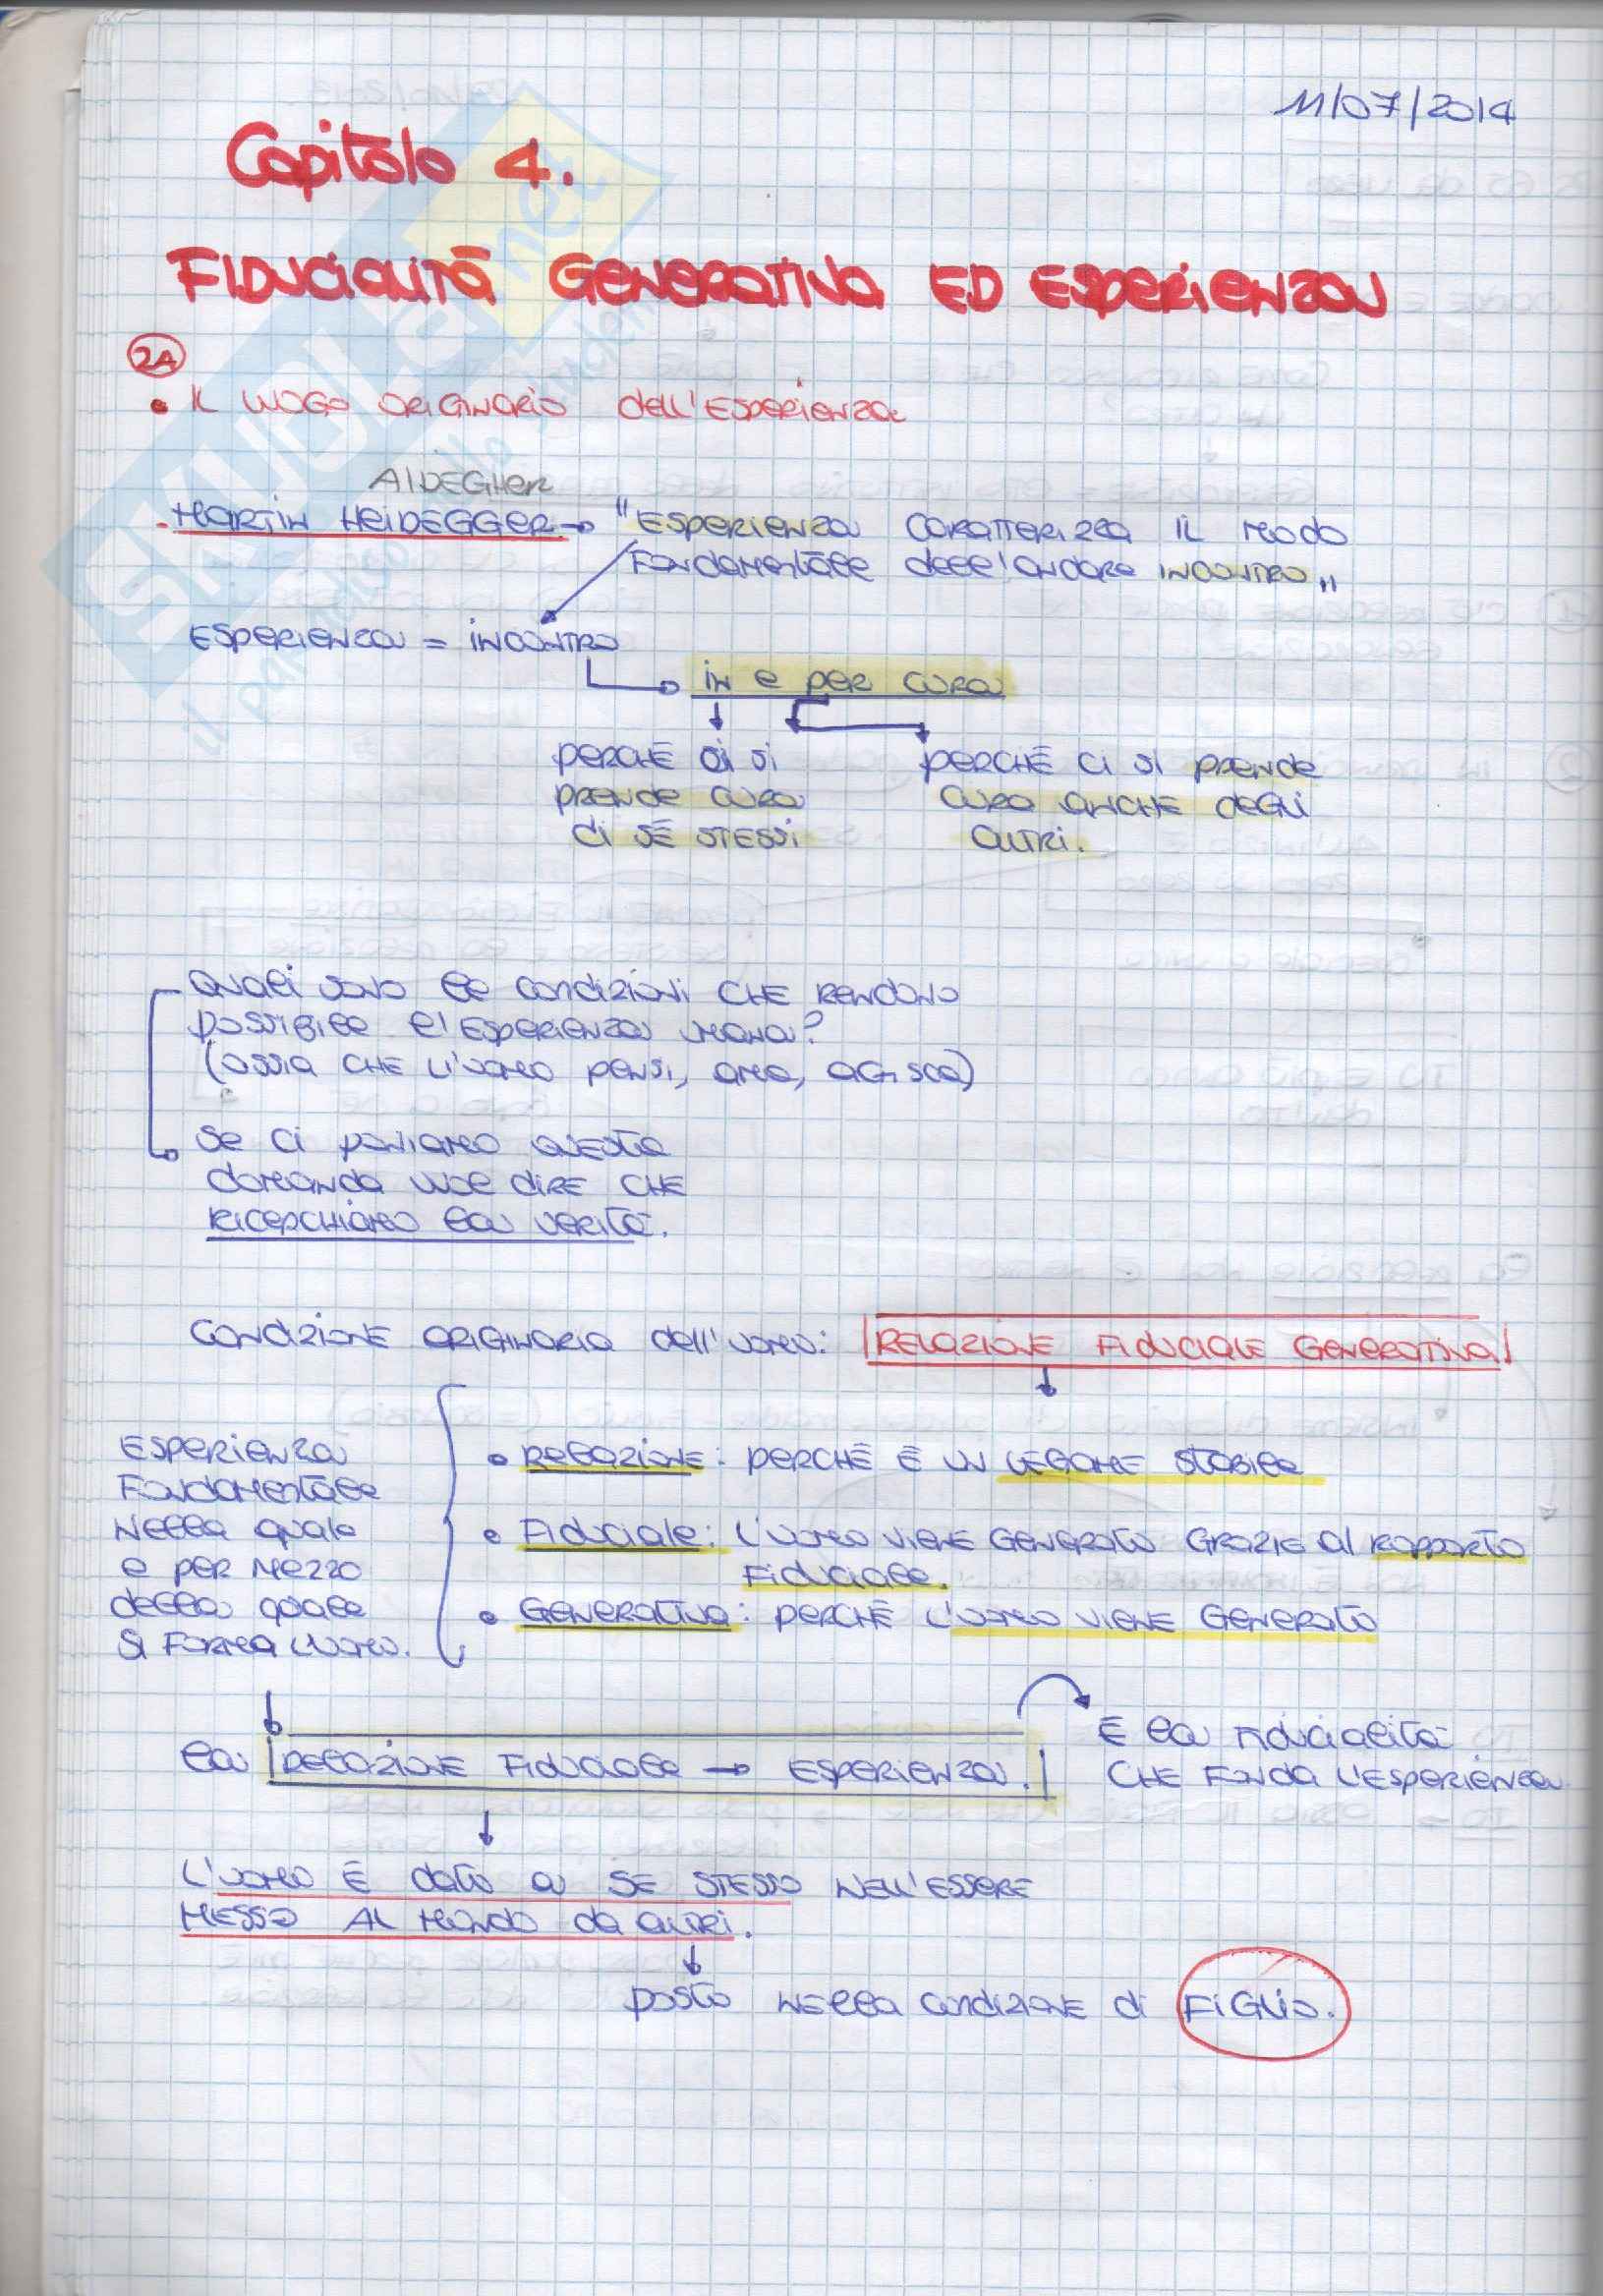 11/07/2014
Capitolo 4.
FIDUCIALITÀ GENERATIVA ED ESPERIENZA
2A
• IL LUOGO ORIGINARIO DELL'ESPERIENZA
AIDEGHER
- MARTIN HEIDEGGER → "ESPERIENZA CARATTERIZZA IL MODO
FONDAMENTALE DELL'ANDARE INCONTRO"
ESPERIENZA = INCONTRO
→ IN E PER CURA
PERCHÉ CI SI
PRENDE CURA
DI SÉ STESSI
PERCHÉ CI SI PRENDE
CURA ANCHE DEGLI
ALTRI.
QUALI SONO LE CONDIZIONI CHE RENDONO
POSSIBILE L'ESPERIENZA UMANA?
(OSSIA CHE L'UOMO PENSI, AMA, AGISCA)
→ SE CI PONIAMO QUESTA
DOMANDA VUOL DIRE CHE
RICERCHIAMO LA VERITÀ.
CONDIZIONE ORIGINARIA DELL'UOMO: RELAZIONE FIDUCIALE GENERATIVA
ESPERIENZA
FONDAMENTALE
NELLA QUALE
E PER MEZZO
DELLA QUALE
SI FORMA L'UOMO.
• RELAZIONE: PERCHÉ È UN LEGAME STABILE
• FIDUCIALE: L'UOMO VIENE GENERATO GRAZIE AL RAPPORTO
FIDUCIALE.
• GENERATIVA: PERCHÉ L'UOMO VIENE GENERATO
LA RELAZIONE FIDUCIALE → ESPERIENZA.
È LA FIDUCIALITÀ
CHE FONDA L'ESPERIENZA
L'UOMO È DATO A SE STESSO NELL'ESSERE
MESSO AL MONDO DA ALTRI.
POSTO NELLA CONDIZIONE DI FIGLIO.